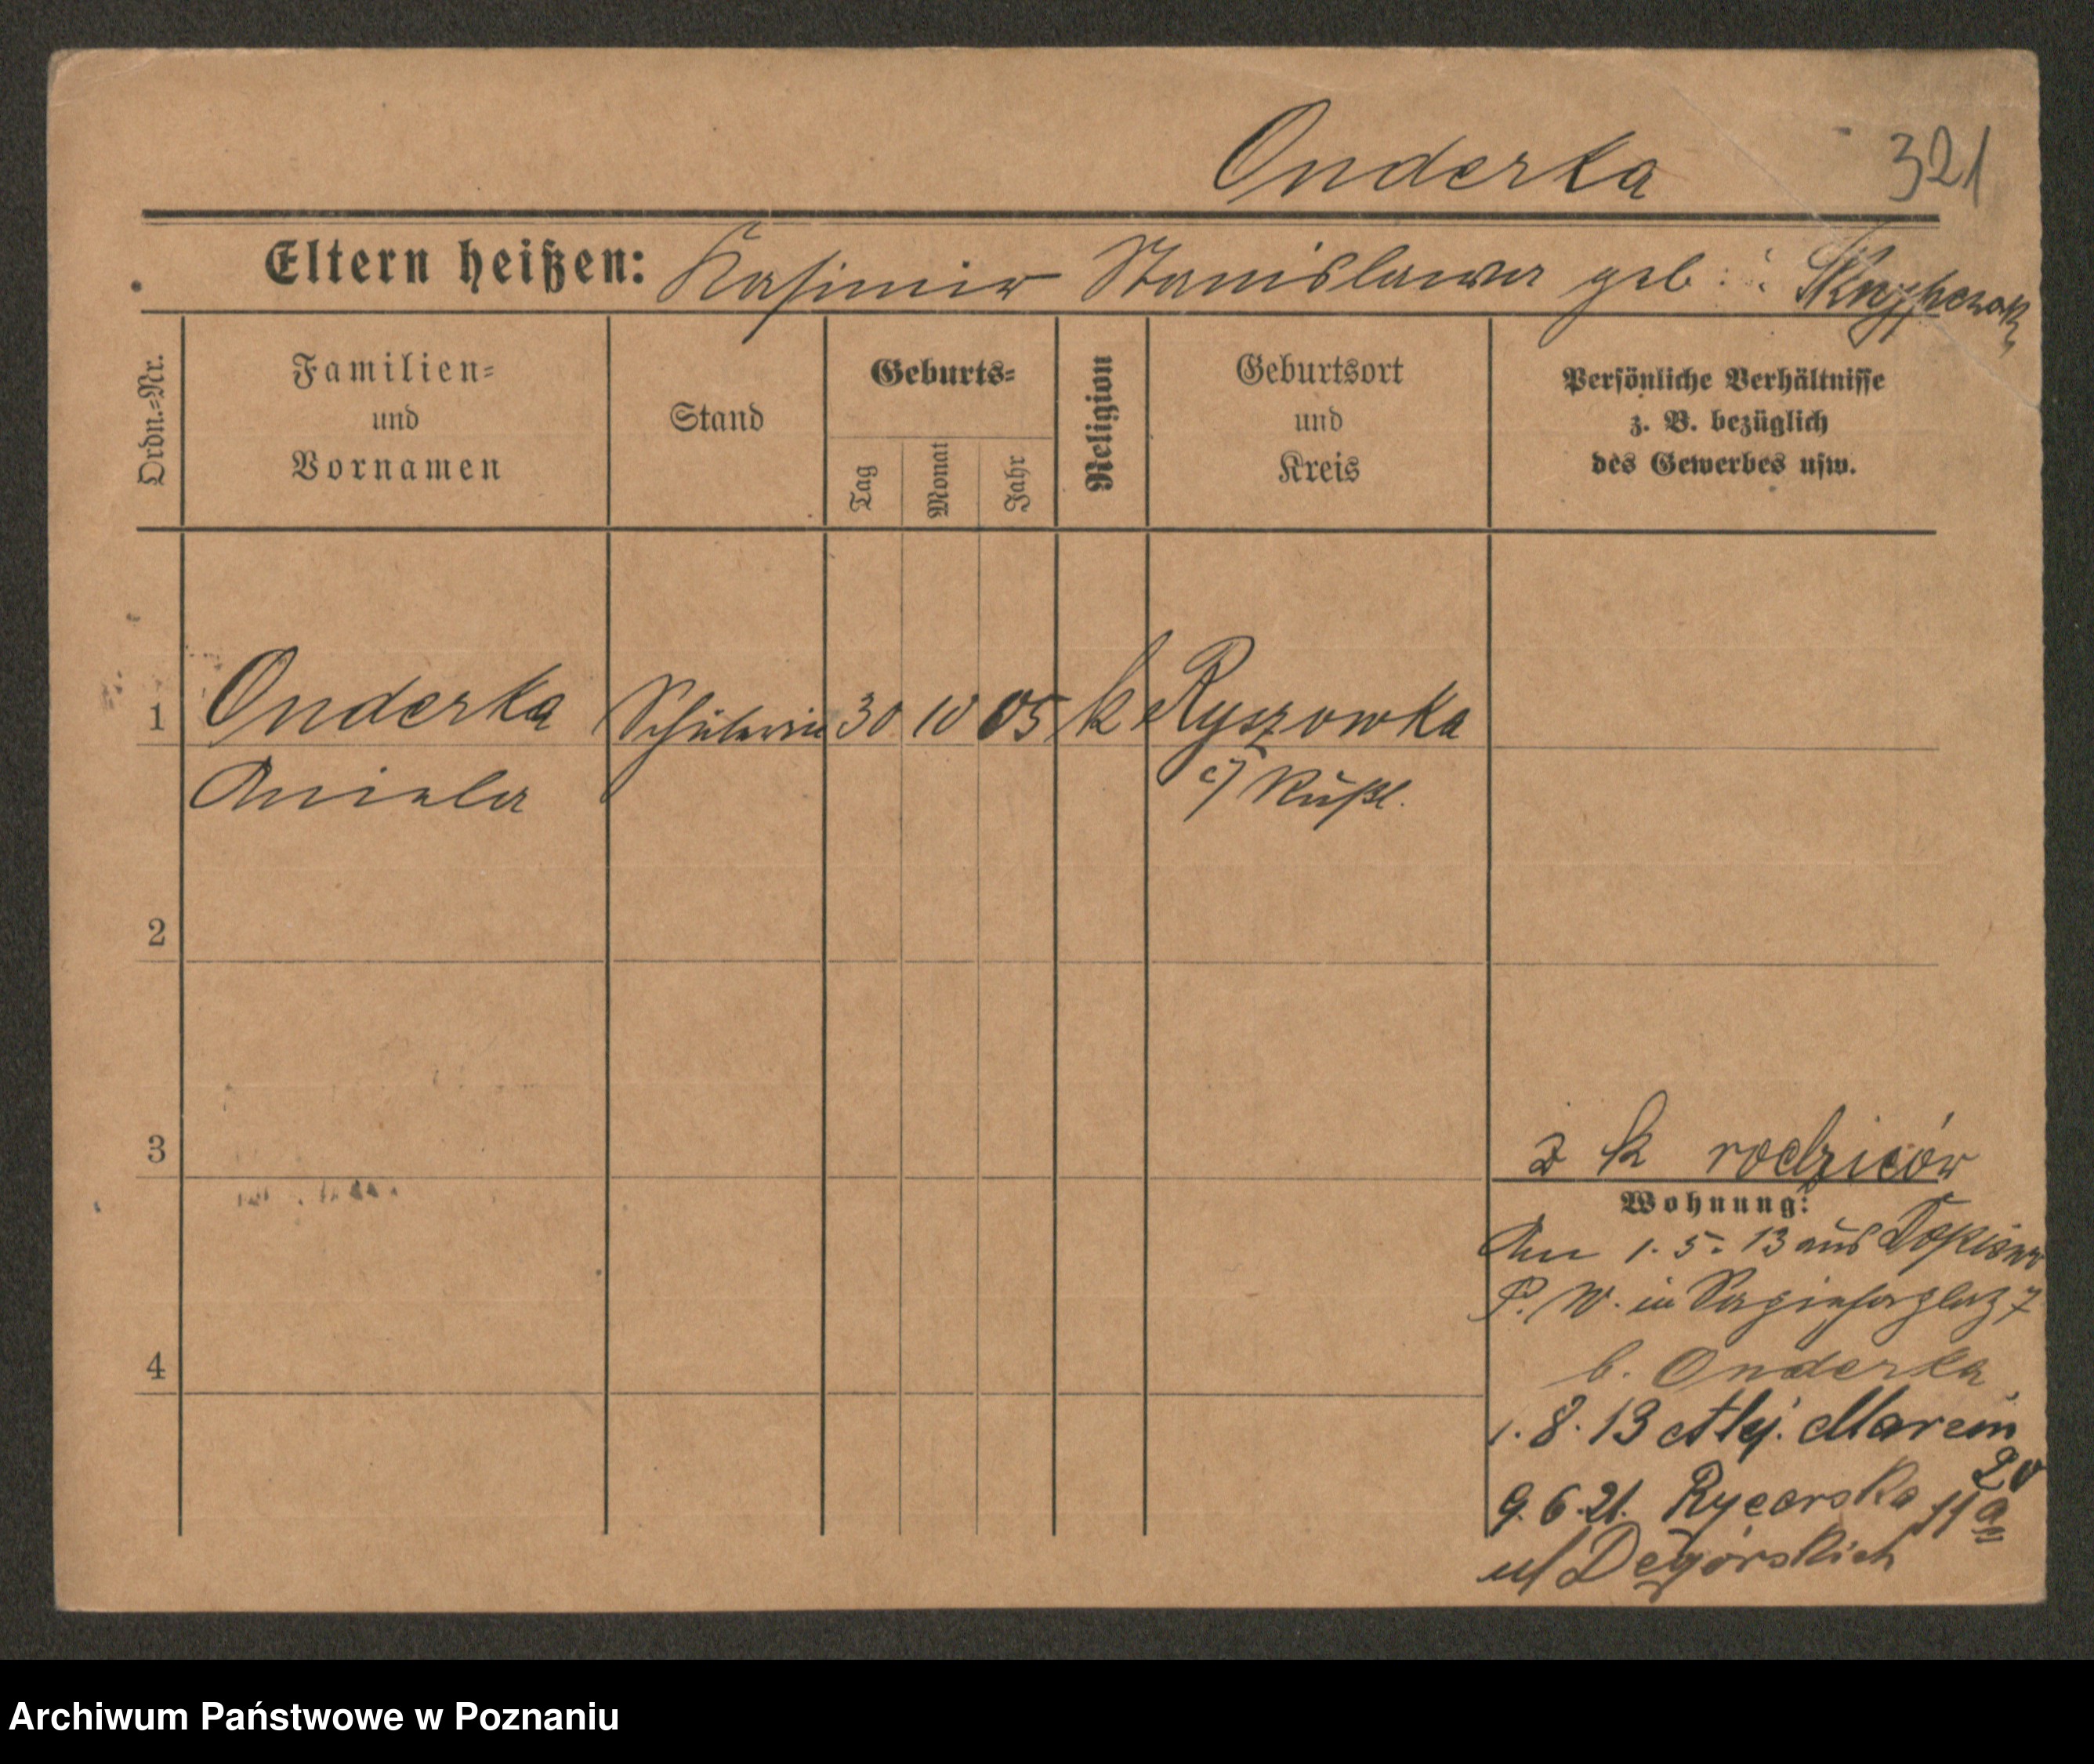 Onderka 321
Eltern heißen: Kasimir Stanislawa geb:
Ordn.=Nr.
Familien=
und
Vornamen
Stand
Geburts=
Tag
Monat
Jahr
Religion
Geburtsort
und
Kreis
Persönliche Verhältnisse
z. B. bezüglich
des Gewerbes usw.
1 Onderka Schülerin 30 10 05 k Ryszowka
Aniela
2
3
4
z k rodziców
Wohnung:
An 1. 5. 13 aus
P. W. in Sapiehaplatz 7
b. Onderka
1. 8. 13 Alej. Marcin
20
9. 6. 21. Rycerska 11 a
u/ Degórskich
Archiwum Państwowe w Poznaniu